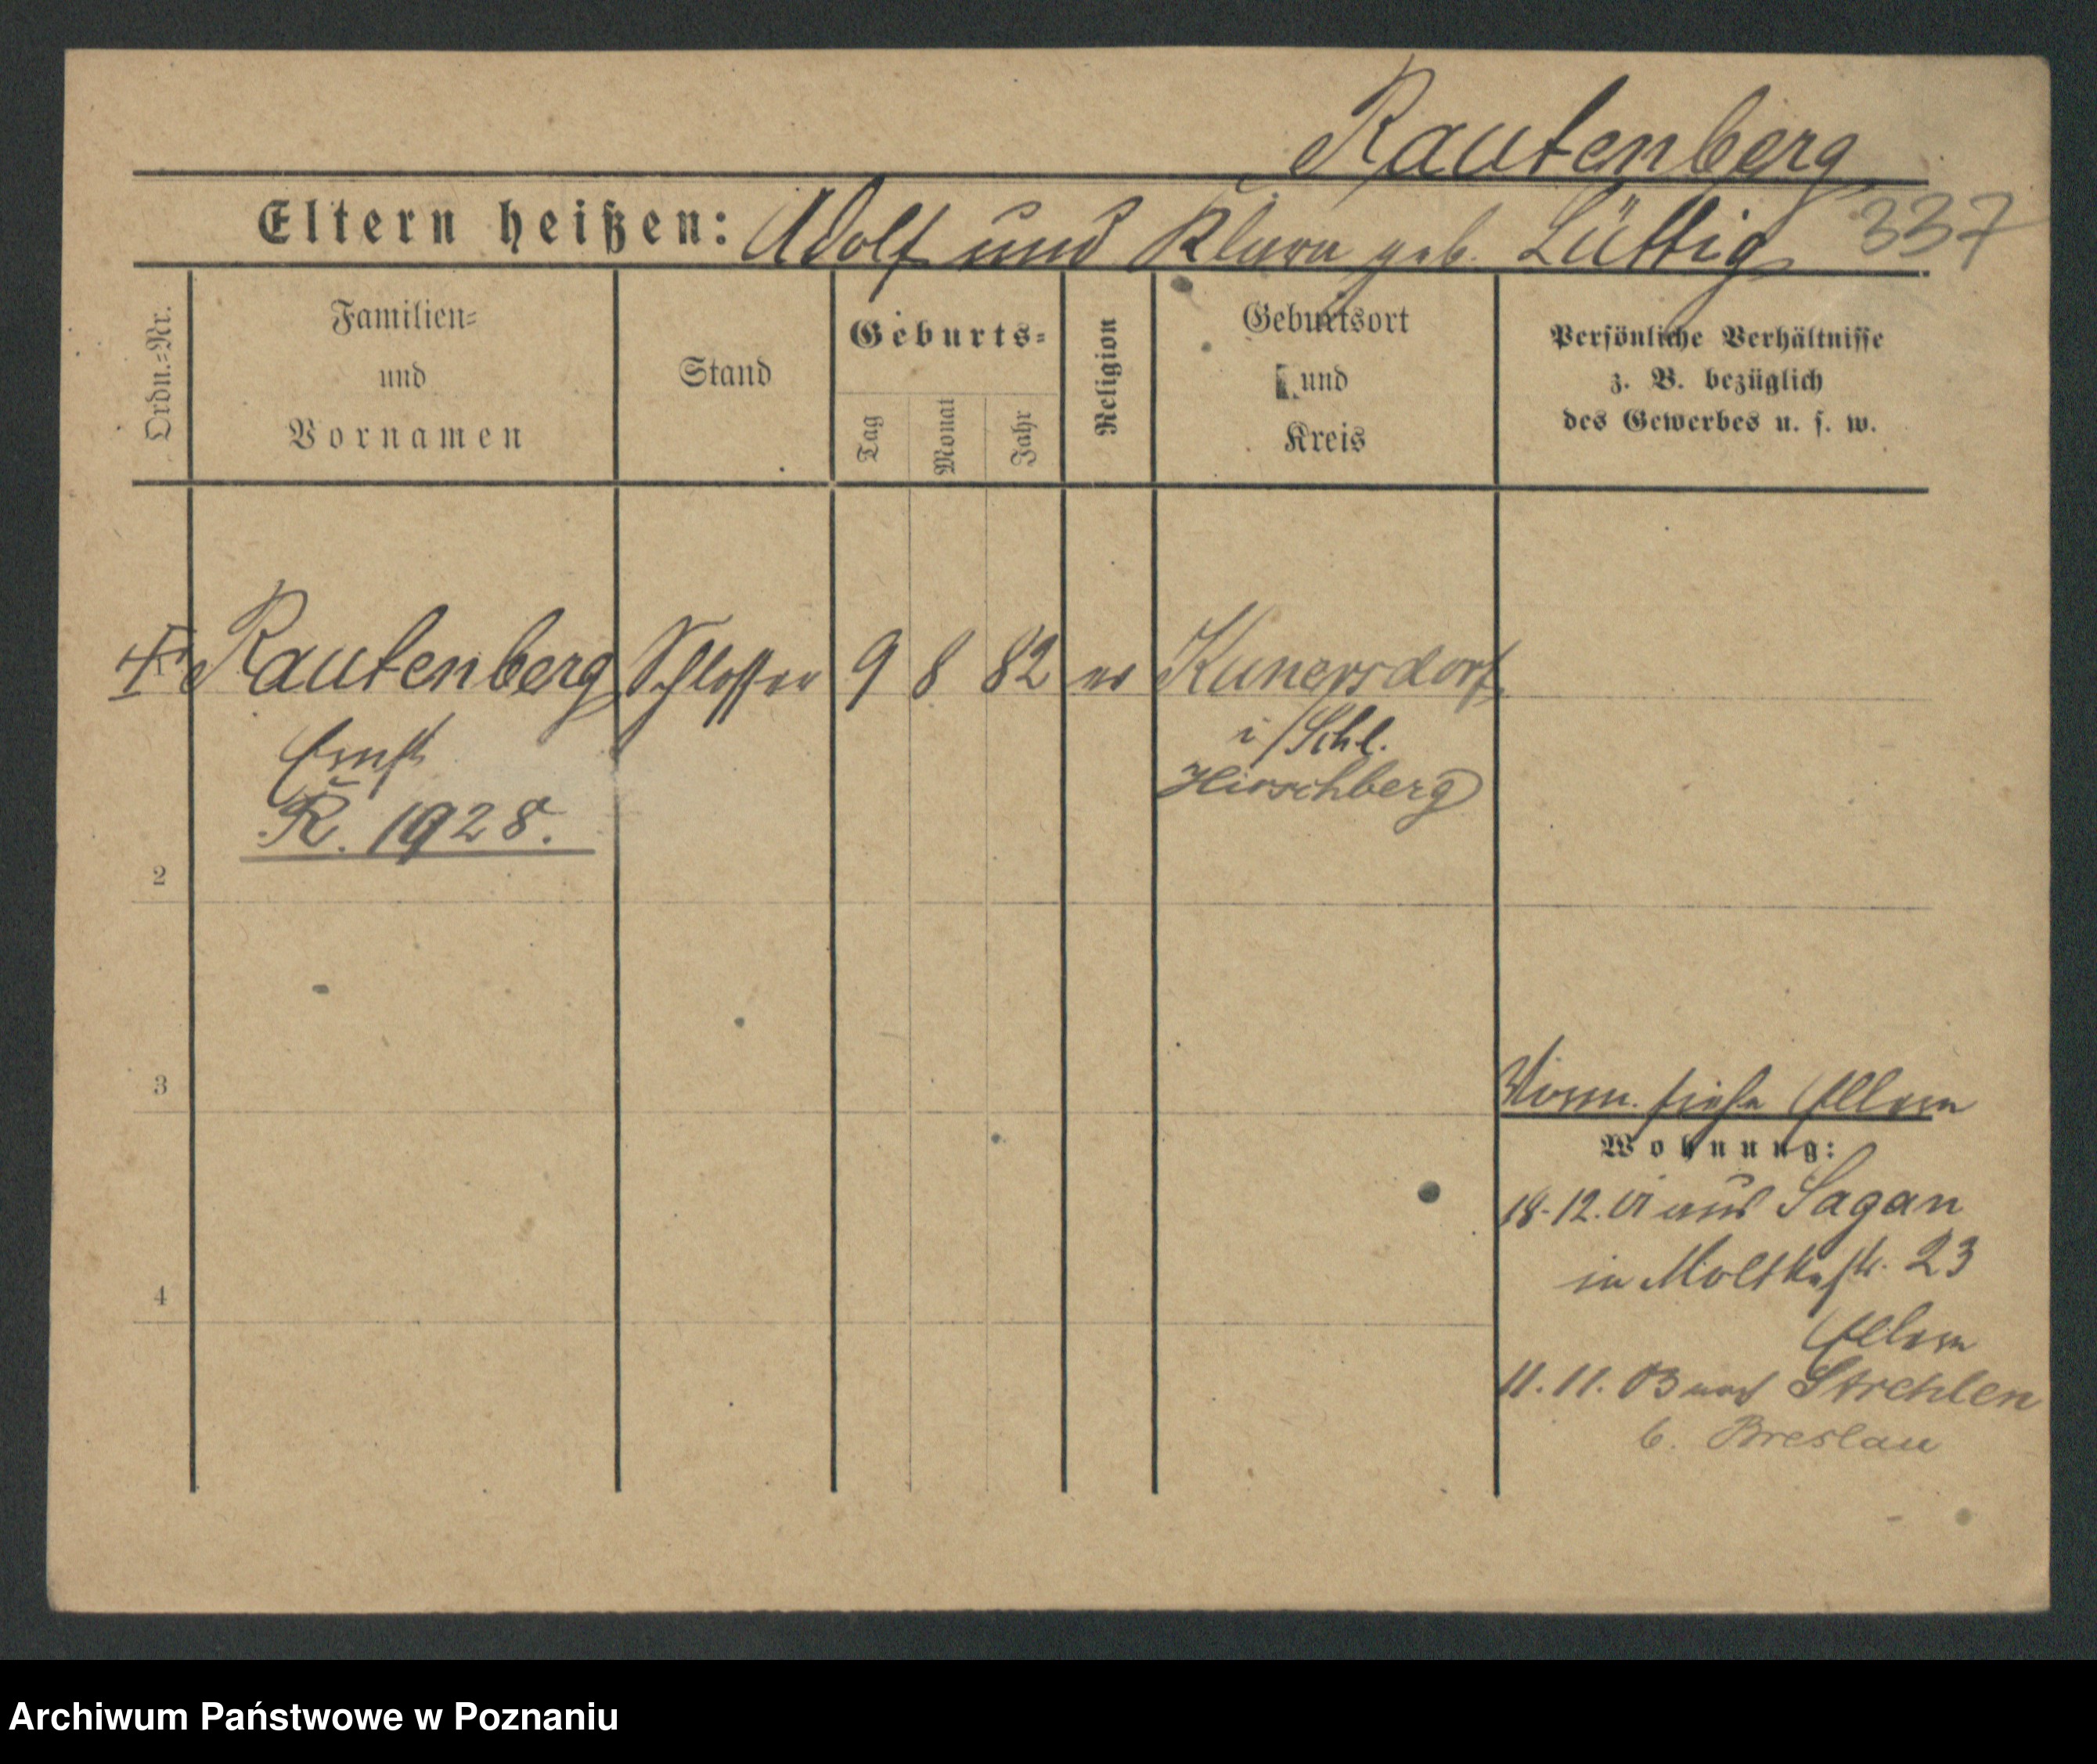 Rautenberg
Eltern heißen: Adolf und Klara geb. Lüttig 337
Ordn.=Nr.
Familien=
und
Vornamen
Stand
Geburts=
Tag
Monat
Jahr
Religion
Geburtsort
und
Kreis
Persönliche Verhältnisse
z. B. bezüglich
des Gewerbes u. s. w.
Rautenberg Schlosser 9 8 82 ev Kunersdorf
Ernst i/Schl.
R. 1928. Hirschberg
2
3
siehe Eltern
Wohnung:
18.12. 01 aus Sagan
in Moltkestr. 23
4
Eltern
11.11. 03 nach Strehlen
b. Breslau
Archiwum Państwowe w Poznaniu